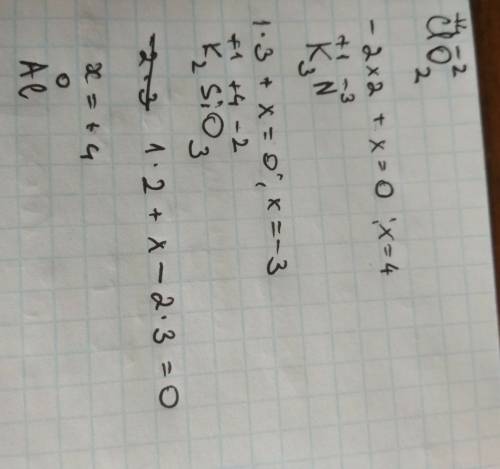 +4 -2
ClO2
-2×2 + x = 0 ; x = 4
+1 -3
K3N
1·3 + x = 0 ; x = -3
+1 +4 -2
K2SiO3
1·2 + x - 2·3 = 0
x = +4
0
Al